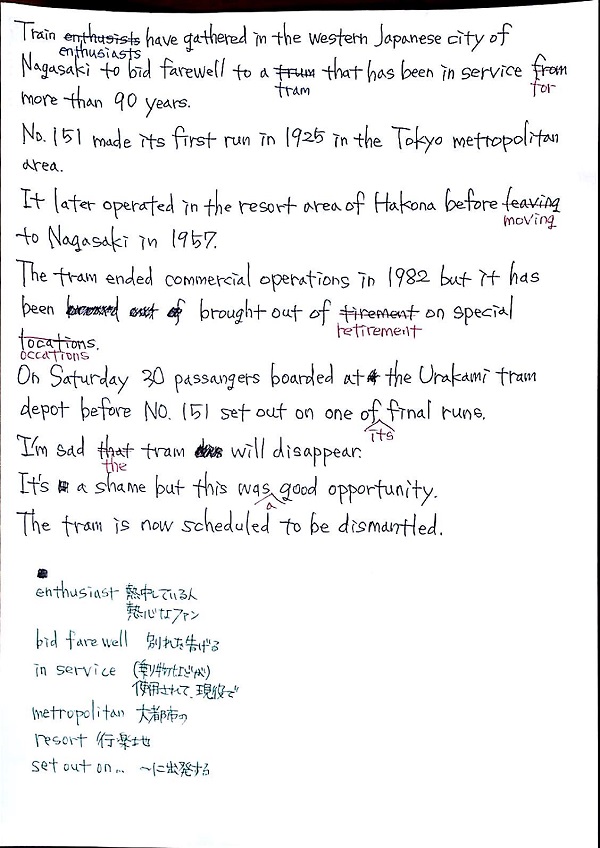 Train enthusists have gathered in the western Japanese city of
enthusiasts
Nagasaki to bid farewell to a trum that has been in service from
tram for
more than 90 years.
No. 151 made its first run in 1925 in the Tokyo metropolitan
area.
It later operated in the resort area of Hakona before leaving
moving
to Nagasaki in 1957.
The tram ended commercial operations in 1982 but it has
been brought out of tirement on special
retirement
locations.
occations
On Saturday 30 passangers boarded at the Urakami tram
depot before NO. 151 set out on one of final runs.
its
I'm sad that tram will disappear.
the
It's a shame but this was good opportunity.
a
The tram is now scheduled to be dismantled.
enthusiast 熱中している人
熱心なファン
bid farewell 別れを告げる
in service (乗り物などが)
使用されて、現役で
metropolitan 大都市の
resort 行楽地
set out on... 〜に出発する